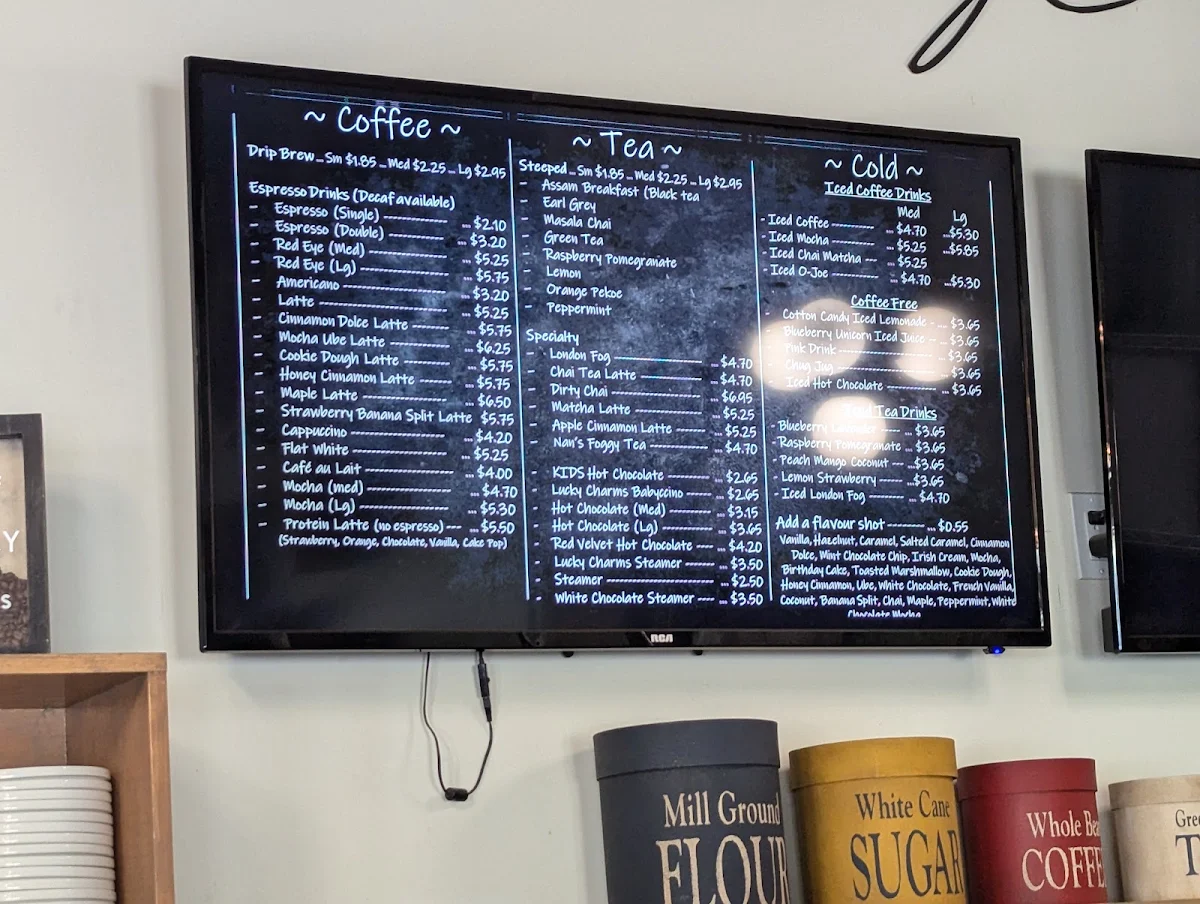 ~ Coffee ~
Drip Brew _ Sm $1.85 _ Med $2.25 _ Lg $2.95
Espresso Drinks (Decaf available)
- Espresso (Single) ---------- ... $2.10
- Espresso (Double) ---------- ... $3.20
- Red Eye (Med) ---------- ... $5.25
- Red Eye (Lg) ---------- ... $5.75
- Americano ---------- ... $3.20
- Latte ---------- ... $5.25
- Cinnamon Dolce Latte ---------- $5.75
- Mocha Ube Latte ---------- ... $6.25
- Cookie Dough Latte ---------- $5.75
- Honey Cinnamon Latte ------ ... $5.75
- Maple Latte ---------- ... $6.50
- Strawberry Banana Split Latte $5.75
- Cappuccino ---------- ... $4.20
- Flat White ---------- ... $5.25
- Café au Lait ---------- ... $4.00
- Mocha (med) ---------- ... $4.70
- Mocha (Lg) ---------- ... $5.30
- Protein Latte (no espresso) --- ... $5.50
(Strawberry, Orange, Chocolate, Vanilla, Cake Pop)
~ Tea ~
Steeped _ Sm $1.85 _ Med $2.25 _ Lg $2.95
- Assam Breakfast (Black tea
- Earl Grey
- Masala Chai
- Green Tea
- Raspberry Pomegranate
- Lemon
- Orange Pekoe
- Peppermint
Specialty
- London Fog ---------- ... $4.70
- Chai Tea Latte ---------- ... $4.70
- Dirty Chai ---------- ... $6.95
- Matcha Latte ---------- ... $5.25
- Apple Cinnamon Latte ------ ... $5.25
- Nan's Foggy Tea ---------- ... $4.70
- KIDS Hot Chocolate ---------- ... $2.65
- Lucky Charms Babyccino ------ ... $2.65
- Hot Chocolate (Med) ---------- ... $3.15
- Hot Chocolate (Lg) ---------- ... $3.65
- Red Velvet Hot Chocolate ---- ... $4.20
- Lucky Charms Steamer ------ ... $3.50
- Steamer ---------- ... $2.50
- White Chocolate Steamer ---- ... $3.50
~ Cold ~
Iced Coffee Drinks
Med Lg
- Iced Coffee -------- ... $4.70 ...$5.30
- Iced Mocha -------- ... $5.25 ...$5.85
- Iced Chai Matcha --- ... $5.25
- Iced O-Joe -------- ... $4.70 ...$5.30
Coffee Free
- Cotton Candy Iced Lemonade - ... $3.65
- Blueberry Unicorn Iced Juice -- ... $3.65
- Pink Drink ---------- ... $3.65
- Chug Jug ---------- ... $3.65
- Iced Hot Chocolate ---------- ... $3.65
Iced Tea Drinks
- Blueberry Lavender ---- ... $3.65
- Raspberry Pomegranate ... $3.65
- Peach Mango Coconut --- ... $3.65
- Lemon Strawberry ---- ... $3.65
- Iced London Fog ------ ... $4.70
Add a flavour shot -------- ... $0.55
Vanilla, Hazelnut, Caramel, Salted Caramel, Cinnamon
Dolce, Mint Chocolate Chip, Irish Cream, Mocha,
Birthday Cake, Toasted Marshmallow, Cookie Dough,
Honey Cinnamon, Ube, White Chocolate, French Vanilla,
Coconut, Banana Split, Chai, Maple, Peppermint, White
Chocolate Mocha
RCA
Mill Ground
FLOUR
White Cane
SUGAR
Whole
COFFEE